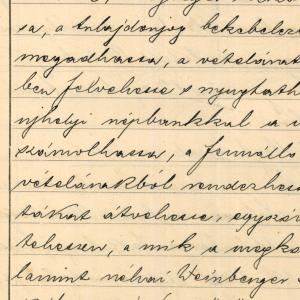 sa, a tulajdonjog bekebelez
megadhassa, a vételárat
ben felvehesse s nyugtath
ujhelyi népbankkal a
számolhassa, a fennálló
vételárakból rendezhess
tákat átvehesse, egyszer
tehessen, a mik a megk
lamint néhai Weinberger